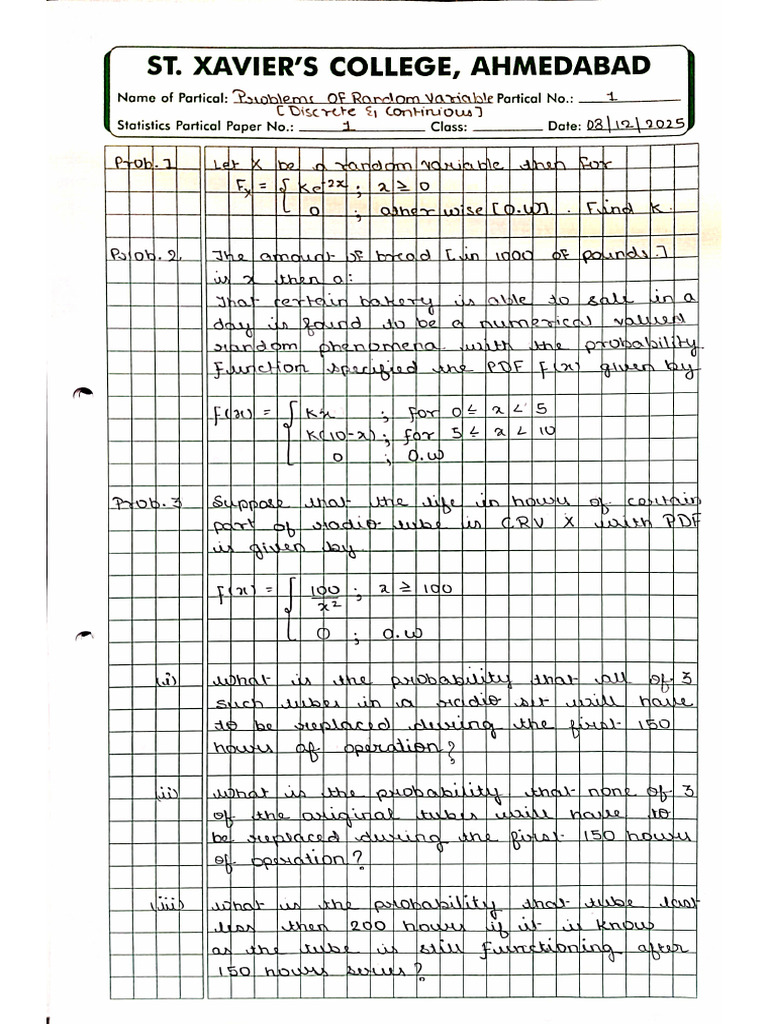 ST. XAVIER'S COLLEGE, AHMEDABAD
Name of Partical: Problems OF Random Variable Partical No.: 1
[Discrete & Continious]
Statistics Partical Paper No.: 1 Class: Date: 03/12/2025
Prob. 1 Let X be a random variable then for
Fx = { Ke-2x ; x ≥ 0
0 ; otherwise [O.W] . Find K.
Prob. 2. The amount of bread [in 1000 of pounds.]
is x then a:
That certain bakery is able to sale in a
day is found to be a numerical valued
random phenomena with the probability
function specified the PDF f(x) given by
f(x) = { Kx ; for 0 ≤ x < 5
K(10-x) ; for 5 ≤ x < 10
0 ; O.W
Prob. 3 Suppose that the life in hours of certain
part of radio tube is CRV X with PDF
is given by
f(x) = { 100/x² ; x ≥ 100
0 ; O.W
(i) What is the probability that all of 3
such tubes in a radio set will have
to be replaced during the first 150
hours of operation?
(ii) What is the probability that none of 3
of the original tubes will have to
be replaced during the first 150 hours
of operation?
(iii) What is the probability that tube last
less then 200 hours if it is know
as the tube is still functioning after
150 hours series?